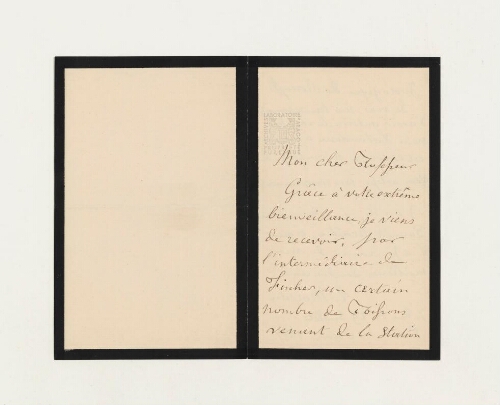 LABORATOIRE
Mon cher Professeur
Grâce à votre extrême
bienveillance, je viens
de recevoir, par
l'intermédiaire de
Fischer, un certain
nombre de Poissons
venant de la Station